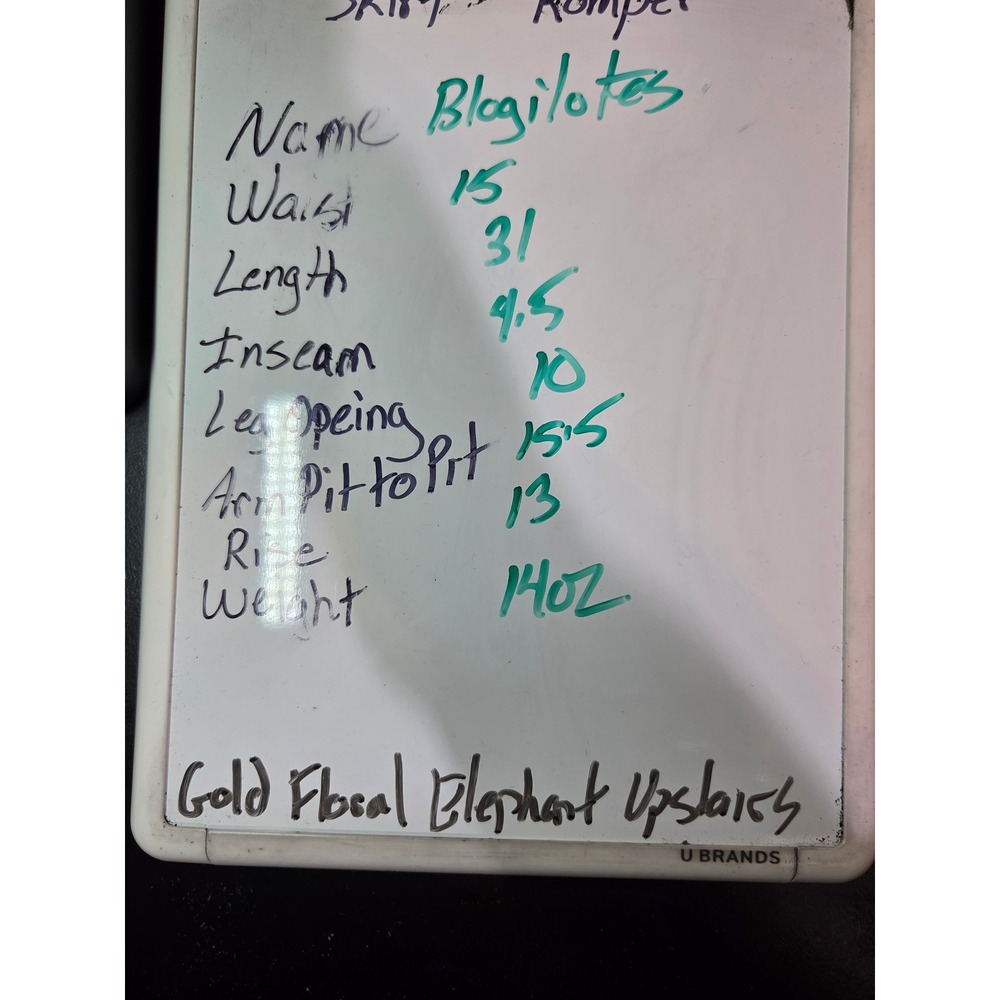 Skirt Romper
Name Blogilotes
Waist 15
Length 31
Inseam 4.5
Leg Opeing 10
Arm Pit to Pit 15.5
Rise 13
Weight 14oz
Gold Floral Elephant Upstairs
U BRANDS